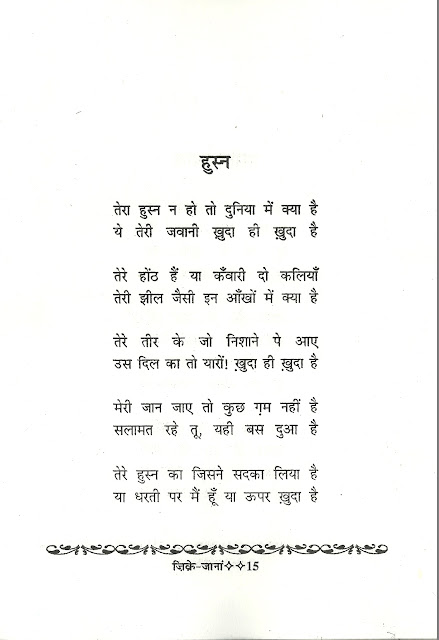 हुस्न
तेरा हुस्न न हो तो दुनिया में क्या है
ये तेरी जवानी ख़ुदा ही ख़ुदा है
तेरे होंठ हैं या कँवारी दो कलियाँ
तेरी झील जैसी इन आँखों में क्या है
तेरे तीर के जो निशाने पे आए
उस दिल का तो यारों! ख़ुदा ही ख़ुदा है
मेरी जान जाए तो कुछ ग़म नहीं है
सलामत रहे तू, यही बस दुआ है
तेरे हुस्न का जिसने सदका लिया है
या धरती पर मैं हूँ या ऊपर ख़ुदा है
ज़िक्रे-जानां✧✧15